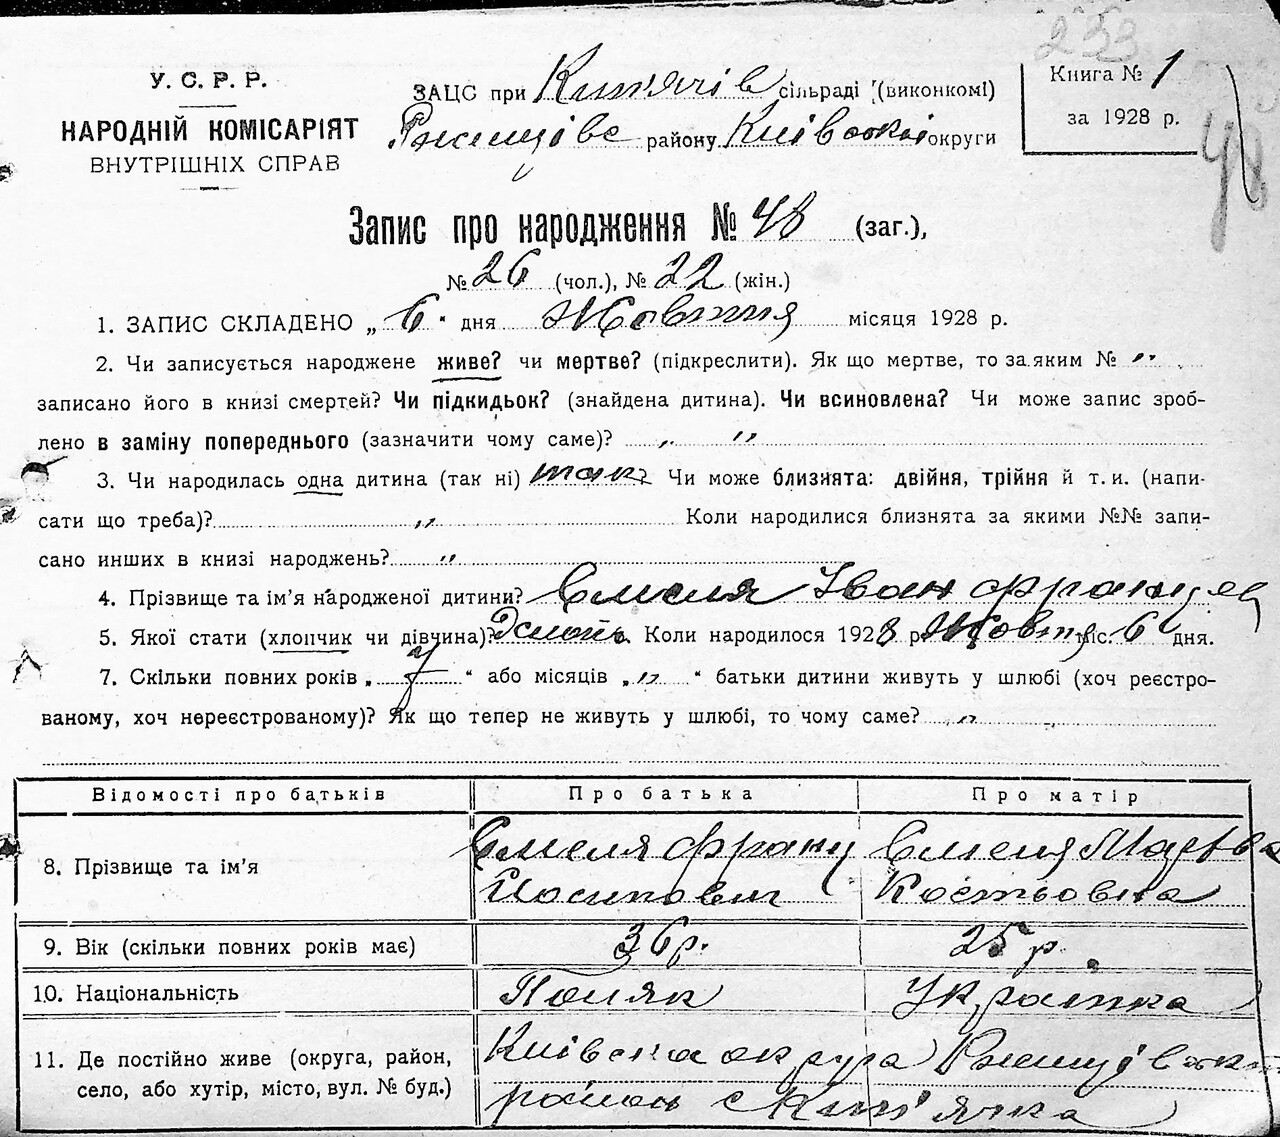 233
У. С. Р. Р.
НАРОДНІЙ КОМІСАРІЯТ
ВНУТРІШНІХ СПРАВ
ЗАЦС при сільраді (виконкомі)
району Київської округи
Книга № 1
за 1928 р.
48
Запис про народження № 48 (заг.),
№ 26 (чол.), № 22 (жін.)
1. ЗАПИС СКЛАДЕНО „ 6 " дня Жовтня місяця 1928 р.
2. Чи записується народжене живе? чи мертве? (підкреслити). Як що мертве, то за яким № "
записано його в книзі смертей? Чи підкидьок? (знайдена дитина). Чи всиновлена? Чи може запис зроб-
лено в заміну попереднього (зазначити чому саме)? " "
3. Чи народилась одна дитина (так ні) так Чи може близнята: двійня, трійня й т. и. (напи-
сати що треба)? " Коли народилися близнята за якими №№ запи-
сано инших в книзі народжень? "
4. Прізвище та ім'я народженої дитини? Емеля Іван
5. Якої стати (хлопчик чи дівчина)? Коли народилося 1928 р. Жовтня міс. 6 дня.
7. Скільки повних років „ 7 " або місяців „ " " батьки дитини живуть у шлюбі (хоч реєстро-
ваному, хоч нереєстрованому)? Як що тепер не живуть у шлюбі, то чому саме? " "
Відомості про батьків Про батька Про матір
8. Прізвище та ім'я Емеля Франц Емеля Марья
Йосипович Костьовна
9. Вік (скільки повних років має) 36 р. 25 р.
10. Національність Поляк Українка
11. Де постійно живе (округа, район, Київска округа
село, або хутір, місто, вул. № буд.) район с Кип'ячка